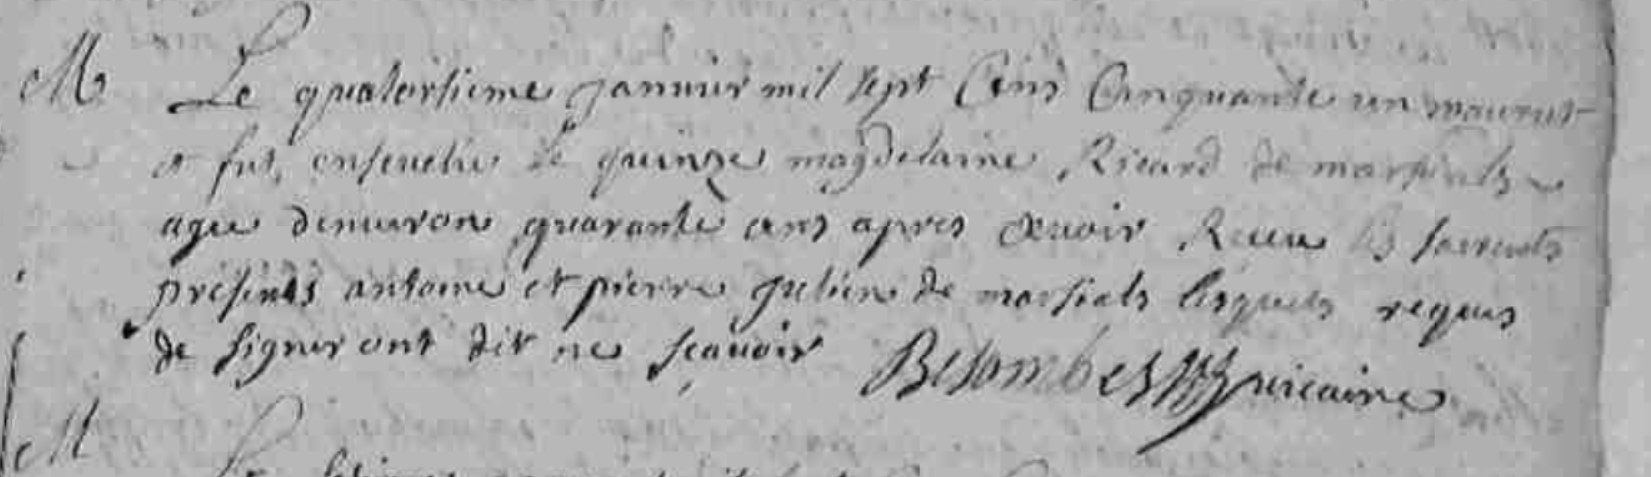 M Le quatorsieme janvier mil sept cens cinquante un mourut
et fut ensevelie le quinze magdelaine Ricard de martials
agee denviron quarante ans apres avoir Receu les sacrements
presents antoine et pierre julien de martials lesquels requis
de signer ont dit ne sçavoir Besombes vicaire
M
Le